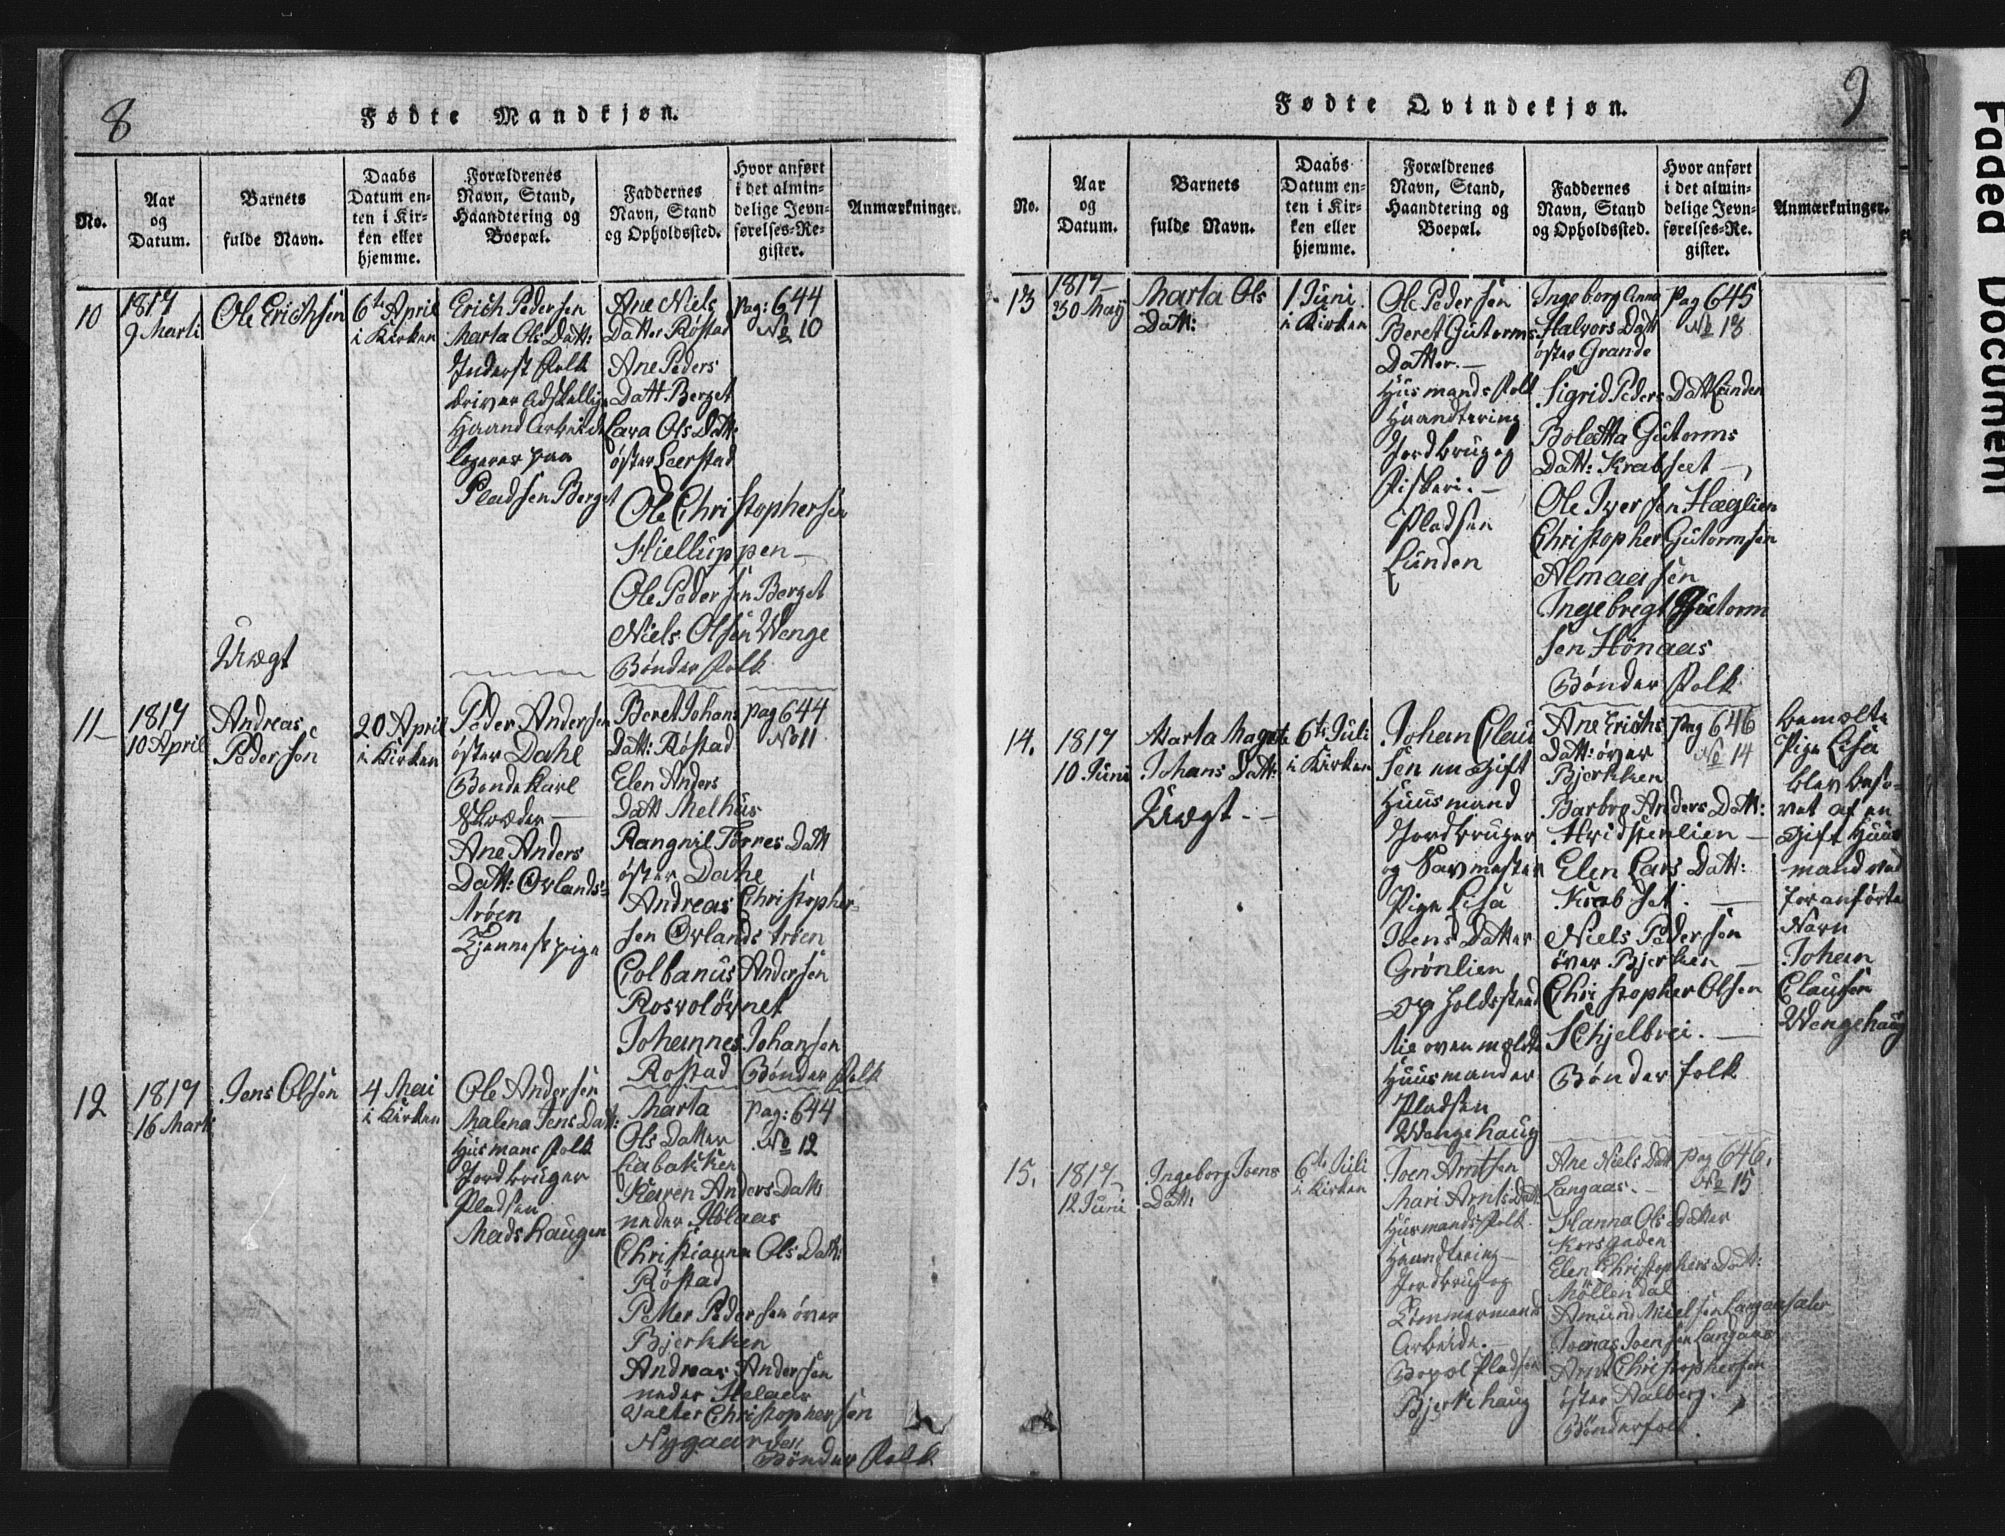 8
Fødte Mandkjøn.
No.
Aar
og
Datum.
Barnets
fulde Navn.
Daabs
Datum en-
ten i Kir-
ken eller
hjemme.
Forældrenes
Navn, Stand,
Haandtering og
Boepæl.
Faddernes
Navn, Stand
og Opholdssted.
Hvor anført
i det almin-
delige Jevn-
førelses-Re-
gister.
Anmærkninger.
10
1817
9 Marti
Ole Erichsen
6te April
i Kirken
Erich Pedersen
Marta Ols Datt:
Inderst Folk
driver adskellige
Haand Arbeide
logerer paa
Pladsen Berget
Ane Niels
Datter Røstad
Ane Peders
Datt Berget
Lava Ols Datt:
øster Leerstad
Ole Christophersen
Hielluppen
Ole Pedersen Berget
Niels Olsen Wenge
Bønder Folk
pag: 644
No 10
Uægt
11
1817
10 April
Andreas
Pedersen
20 April
i Kirken
Peder Andersen
øster Dahl
Bondekarl
Skræder
Ane Anders
Datt: Ørlands-
trøen
Tjenestpige
Beret Johans
Datt: Røstad
Elen Anders
Datt Melhus
Rangnil Torres Datt
øster Dahl
Andreas Christopher-
sen Ørlands trøen
Colbanus Andersen
Rosvoløvnet
Johannes Johansen
Røstad Bønder Folk
pag 644
No 11
12
1817
16 Marti
Jens Olsen
4 Mai
i Kirken
Ole Andersen
Malena Jens Datt:
Husmans Folk
Jordbruger
Pladsen
Madshaugen
Marta
Ols Datter
Labakken
Karen Anders Datt
neder Hølaas
Christianna Ols Datt:
Røstad
Petter Pedersen över
Bjerkken
Andreas Andersen
neder
Walter Christophersen
Nygaarden
Bønder Folk
pag: 644
No 12
9
Fødte Qvindekjøn.
No.
Aar
og
Datum.
Barnets
fulde Navn.
Daabs
Datum en-
ten i Kir-
ken eller
hjemme.
Forældrenes
Navn, Stand,
Haandtering og
Boepæl.
Faddernes
Navn, Stand
og Opholdssted.
Hvor anført
i det almin-
delige Jevn-
førelses-Re-
gister.
Anmærkninger.
13
1817
30 May
Marta Ols
Datt:
1 Juni
i Kirken
Ole Pedersen
Beret Gutorms
Datter.
Husmands Folk
Haandtering
Jordbrug og
Fiskeri.
Pladsen
Lunden
Ingeborg Anna
Halvors Datt
øster Grande
Sigrid Peders Datt Lunden
Boletta Gutorms
Datt: Krabset
Ole Iversen Hæglien
Christopher Gutormsen
Almaasen
Ingebregt Gutorm
sen Hönaas
Bønder Folk
pag 645
No 13
14.
1817
10 Juni
Marta Magreta
Johans Datt:
Uægt.
6te Juli
i Kirken
Johan Clau
sen en Gift
Huusmand
Jordbruger
og Savmester
Pige Lisa
Joens Datter
Grønlien
opholdssted
hie ovenmældte
Huusmander
Pladsen
Wengehaug
Ane Erichs
Datt: över
Bjerkken
Barbro Anders Datt:
Hvidstenlien
Elen Lars Datt:
Krabset.
Niels Pedersen
över Bjerken
Christopher Olsen
Schjelbrei.
Bønder folk
pag 646
No 14
bemælte
Pige Lisa
blev beso-
vet af en
Gift Huus
mand ved
foranførte
Navn
Johan
Clausen
Wengehaug
15.
1817
12 Juni
Ingeborg Joens
Datt:
6te Juli
i Kirken
Joen Arntsen
Mari Arnts Datt
Husmands Folk
Haandtering
Jordbrug og
Tömmermands
Arbeide.
Bopæl Pladsen
Bjerkihaug
Ane Niels Datt
Langaas.
Hanna Ols Datter
Korsgaden
Elen Christophers Datt:
Möllendal
Amund Nielsen Langaasaler
Joenas Joensen Langaas
Arnt Christophersen
øster Aalberg.
Bønderfolk.
pag 646.
No 15
Faded Document